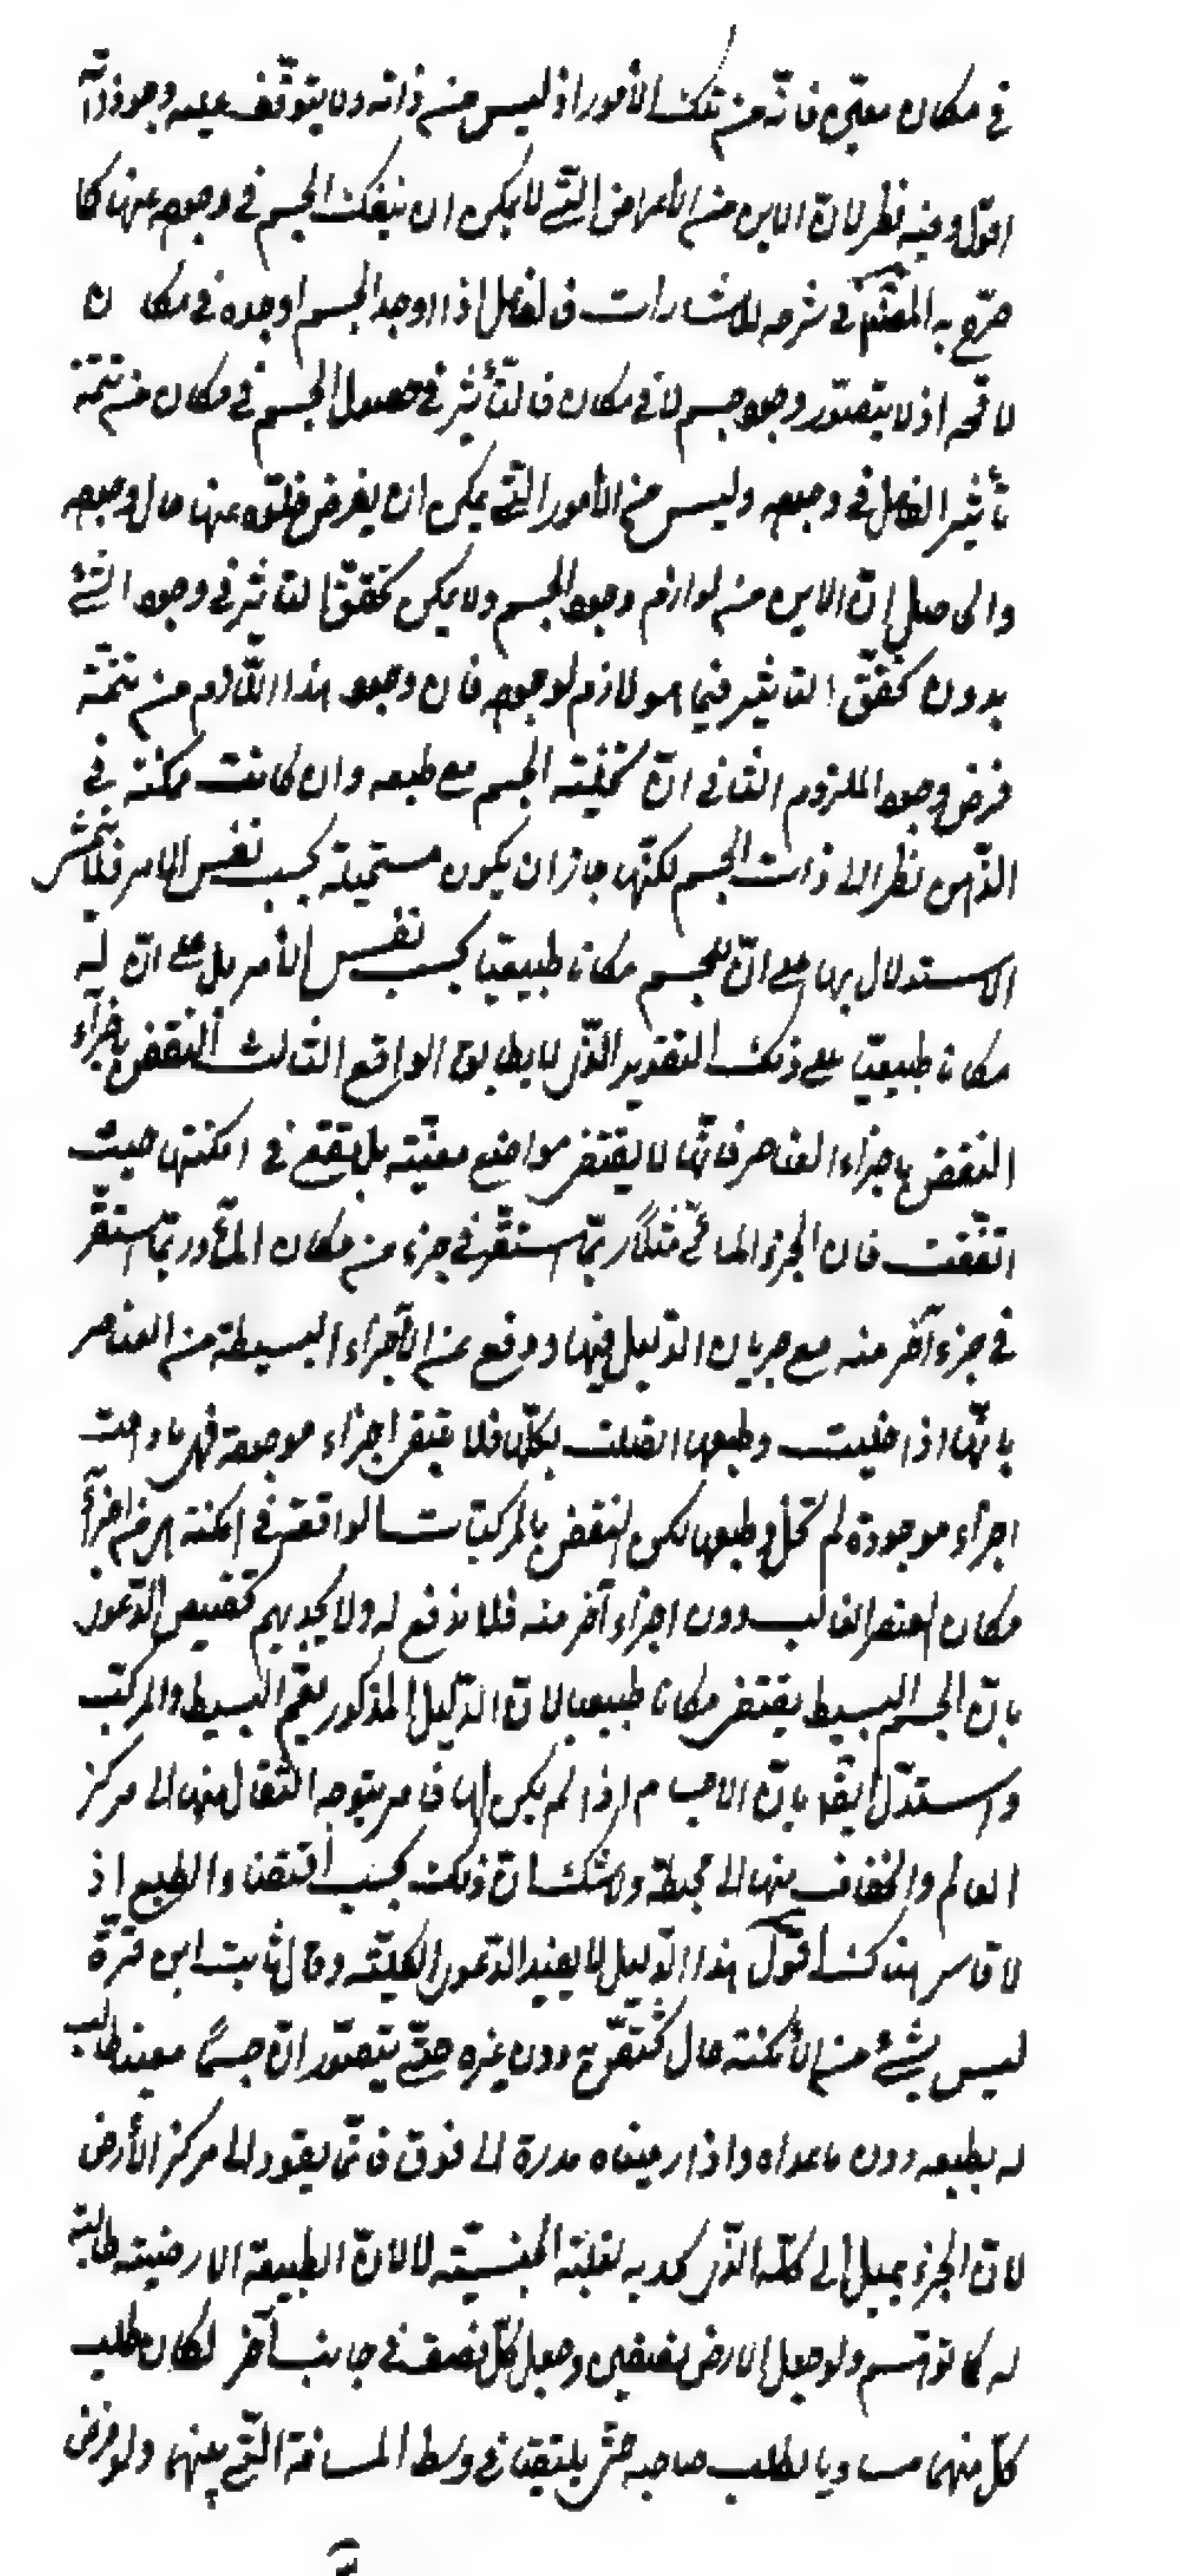 في مكان معيّن فانّه من تلك الأمور اذ ليس من ذاته ولا يتوقّف عليه وجود ذاته
اقول وفيه نظر لانّ الاين من الاعراض الّتي لا يمكن ان ينفك الجسم في وجوده عنها كما
صرّح به المصنّف في شرحه للاشارات فالفاعل اذا اوجد الجسم اوجده في مكان
لا محة اذ لا يتصوّر وجود جسم لا في مكان فالتأثير في حصول الجسم في مكان من تتمّة
تأثير الفاعل في وجوده وليس من الأمور الّتي يمكن ان يفرض خلوّه عنها حال وجوده
والحاصل انّ الاين من لوازم وجود الجسم ولا يمكن تحقّق التأثير في وجود الشئ
بدون تحقّق التأثير فيما هو لازم لوجوده فان وجود هذا اللّازم من تتمّة
فرض وجود الملزوم الثاني انّ تخلية الجسم مع طبعه وان كانت ممكنة في
الذّهن نظرا الى ذات الجسم لكنّها جاز ان يكون مستحيلة بحسب نفس الامر فلا يتمشى
الاستدلال بها على انّ للجسم مكانا طبيعيّا بحسب نفس الأمر بل على انّ له
مكانا طبيعيّا على ذلك التقدير الّذى لا يطابق الواقع الثالث النقض باجزاء
النقض باجزاء العناصر فانّها لا يقتضى مواضع معيّنة بل يقع في امكنتها حيث
اتّفقت فان الجزء المائىّ مثلا ربّما استقرّ في جزء من مكان الماء وربّما استقرّ
في جزء آخر منه مع جريان الدّليل فيها ودفع عن الأجزاء البسيطة من العناصر
بانّها اذا خليت وطبعها اتصلت بكلّها فلا تبقى اجزاء موجودة فهى ما دامت
اجزاء موجودة لم تخل وطبعها لكن النقض بالمركّبات الواقعة في امكنة هى من اجزاء
مكان العنصر الغالب دون اجزاء آخر منه فلا مدفع له ولا يجديهم تخصيص الدّعوى
بانّ الجسم البسيط يقتضى مكانا طبيعيا لانّ الدّليل المذكور يعمّ البسيط والمركّب
واستدلّ ايضا بانّ الاجسام اذا لم يكن لها قاسر يتوجه الثقال منها الى مركز
العالم والخفاف منها الى محيطه ولا شك انّ ذلك بحسب اقتضاء الطبع اذ
لا قاسر هناك اقول هذا الدّليل لا يفيد الدّعوى الكلّية وقال ثابت ابن قرّة
ليس بشئ من الأمكنة حال تختصّ به دون غيره حتّى يتصوّر انّ جسما معينا طالب
له بطبعه دون ما عداه واذا رمينا مدرة الى فوق فانّما يعود الى مركز الأرض
لانّ الجزء يميل إلى كلّه الّذى يجذبه لغلبة الجنسيّة لا لانّ الطبيعة الارضية طالبة
له كما توهّم ولو جعل الارض نصفين وجعل كلّ نصف في جانب آخر لكان طلب
كلّ منهما مساويا لطلب صاحبه حتّى يلتقيا في وسط المسافة الّتي بينهما ولو فرض